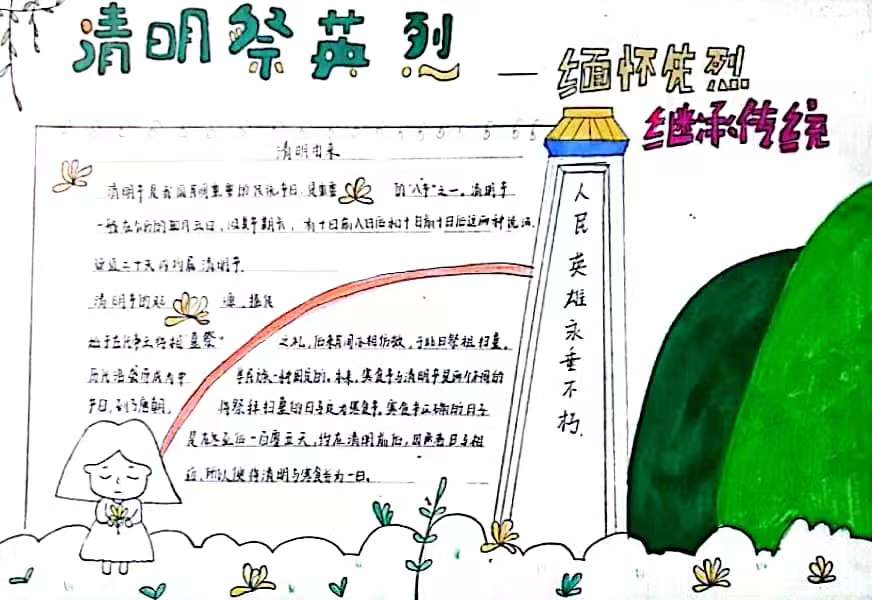 清明祭英烈
—缅怀先烈
继承传统
清明由来
清明节是我国民间重要的传统节日,是重要 的"八节"之一。清明节
一般在公历的四月五日,但其节期长,有十日前八日后和十日前十日后这两种说法.
这近二十天内均属清明节.
清明节的起 源,据说
始于古代帝王将相"墓祭" 之礼,后来民间亦相仿效,于此日祭祖扫墓。
历代沿袭而成为中 华民族一种固定的。本来,寒食节与清明节是两个不同的
节日,到了唐朝, 将祭拜扫墓的日子定为寒食节,寒食节正确的日子
是在冬至后一百零五天,约在清明前后,因两者日子相
近,所以便将清明与寒食合为一日。
人民英雄永垂不朽.